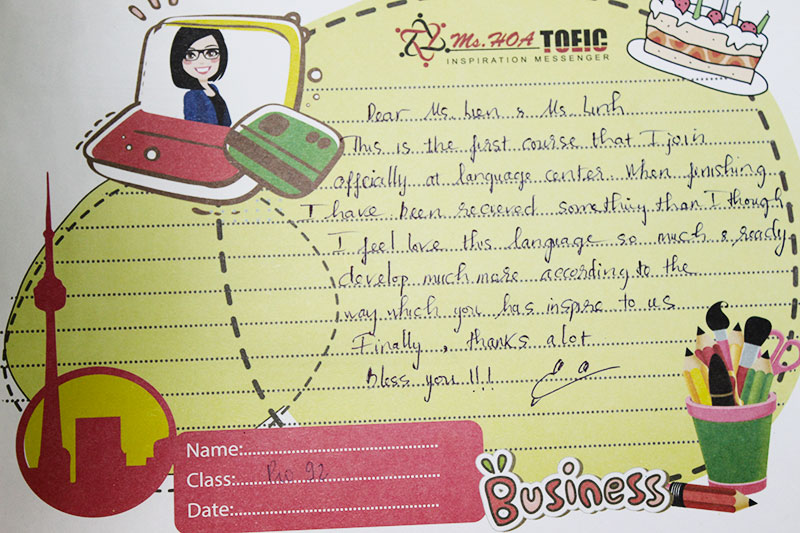 Ms. HOA TOEIC
INSPIRATION MESSENGER
Dear Ms. Lien & Ms. Linh
This is the first course that I join
offcially at language center. When finishing
I have been recieved something than I though
I feel love this language so much & ready
develop much more according to the
way which you has inspire to us
Finally, thanks a lot
Bless you !!!
Name:
Class: Pro 92
Date:
Business